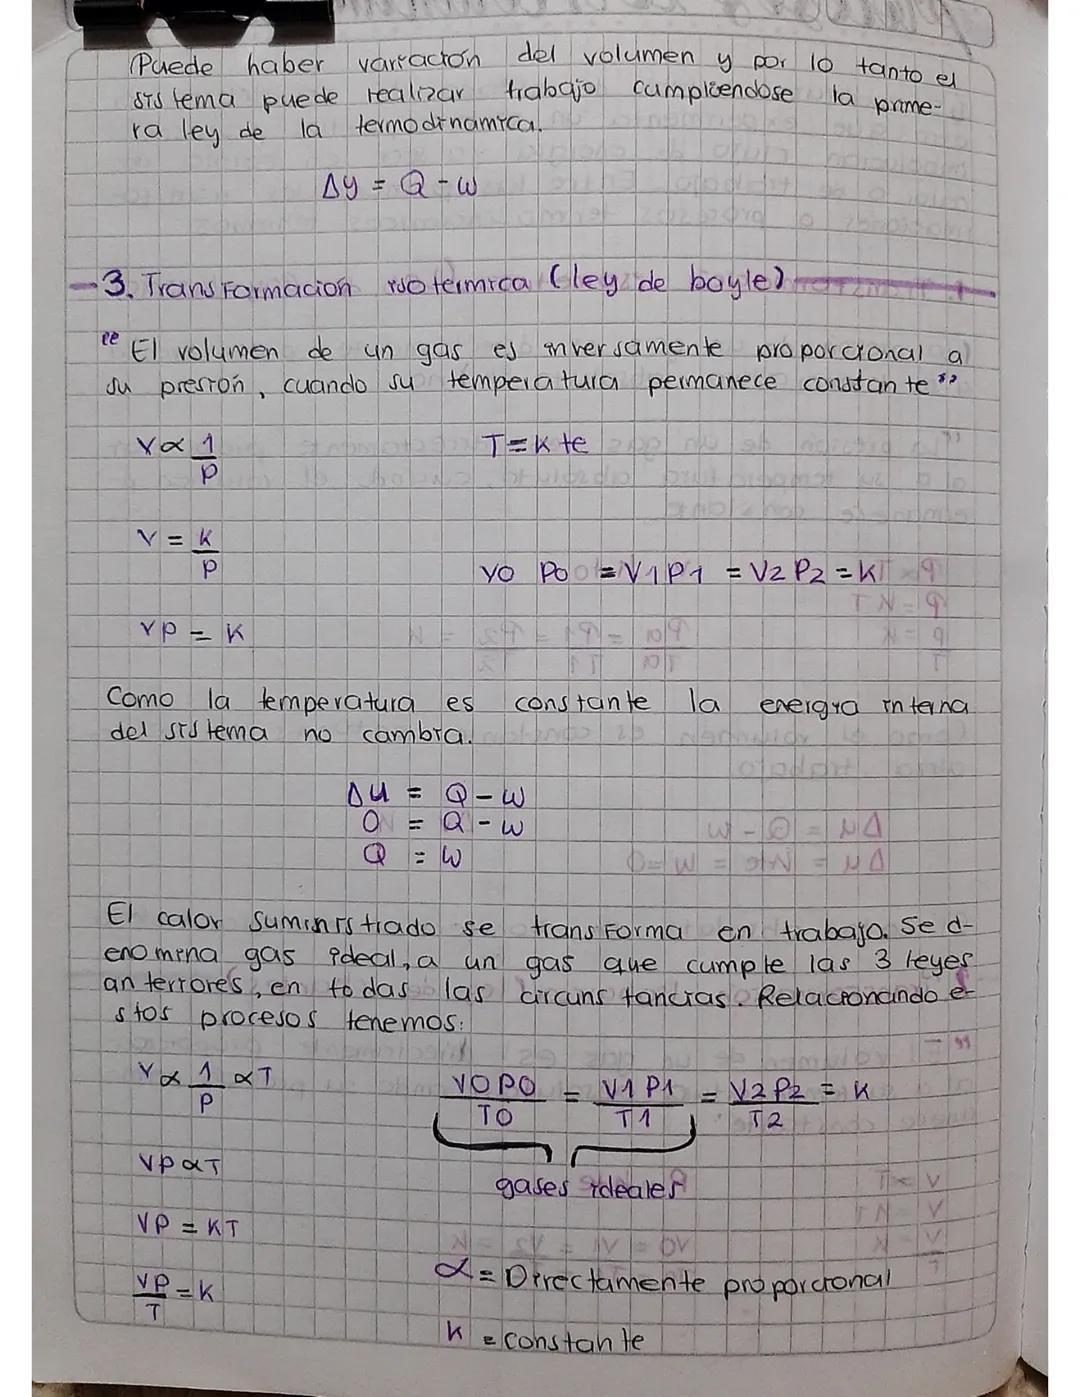 Puede haber variación del volumen y por lo tanto el
sistema puede realizar trabajo cumpliendose la prime-
ra ley de la termodinamica.
Δy = Q - W
3. Transformacion isotermica (ley de boyle)
"El volumen de un gas es inversamente proporcional a
su presión, cuando su temperatura permanece constante"
V ∝ 1/P
T = Kte
V = K/P
V0 P0 = V1 P1 = V2 P2 = K
VP = K
Como la temperatura es constante la energia interna
del sistema no cambia.
Δu = Q - W
0 = Q - W
Q = W
El calor suministrado se transforma en trabajo. Se d-
enomina gas ideal, a un gas que cumple las 3 leyes
anteriores, en todas las circunstancias. Relacionando e-
stos procesos tenemos:
V ∝ 1/P ∝ T
V0P0/T0 = V1P1/T1 = V2P2/T2 = K
gases ideales
VP ∝ T
VP = KT
∝ = Directamente proporcional
VP/T = K
K = constante